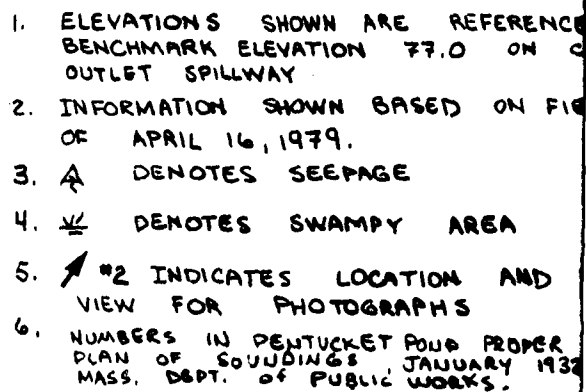 1. ELEVATIONS SHOWN ARE REFERENCE
BENCHMARK ELEVATION 77.0 ON
OUTLET SPILLWAY
2. INFORMATION SHOWN BASED ON FIE
OF APRIL 16, 1979.
3. DENOTES SEEPAGE
4. DENOTES SWAMPY AREA
5. #2 INDICATES LOCATION AND
VIEW FOR PHOTOGRAPHS
6. NUMBERS IN PENTUCKET POND PROPER
PLAN OF SOUNDINGS, JANUARY 193
MASS. DEPT. OF PUBLIC WORKS.